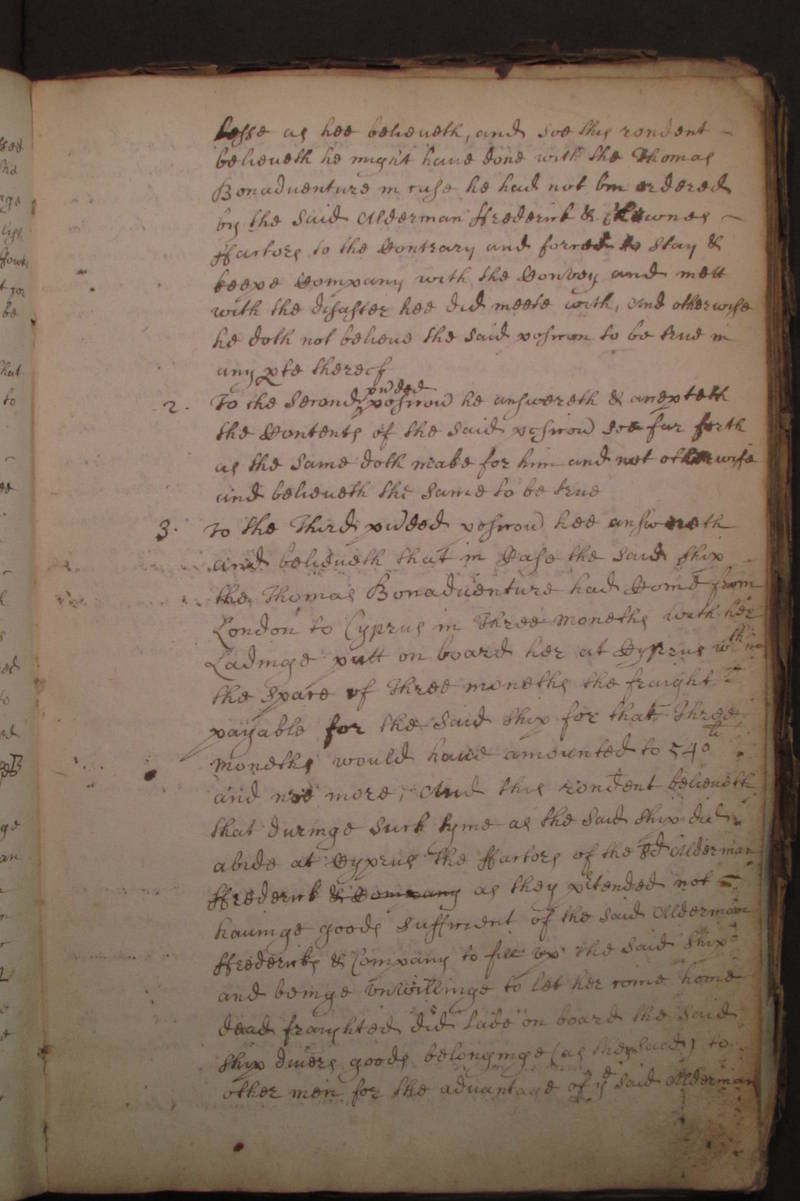 lesse as hee believeth, and soe this rondent
believeth he might have done with the Thomas
Bonadventure in case he had not bin ordered
by the said Alderman ffrederick & Townes
ffactors to the Contrary and forced to stay &
keepe Company with the Convoy and mett
with the disaster hee did meete with, And otherwise
he doth not believe the said position to be true in
any pte thereof
2. To the second pwded position he answereth & accepteth
the Contents of the said position soe far forth
as the same doth make for him and not otherwise
and believeth the same to be true
3. To the Third pwded position hee answereth
and believeth that in Case the said ship
the Thomas Bonadventure had Come from
London to Cyprus in Three moneths with her
Ladinge putt on board her at Cyprus wth in
the space of Three moneths the fraight
payable for the said ship for that Three
moneths would have amounted to 540 li
and noe more, And this rondent believeth
that duringe such tyme as the said ship did
abide at Cyprus the ffactors of the sd Alderman
ffrederick & Company as they ptended not
havinge goods sufficient of the said Alderman
ffredericks & Company to fill up the said ship
and beinge unwillinge to let her come home
dead fraighted did lade on board the said
ship divers goods belonginge (as they said) to
other men for the advantage of ye said Alderman